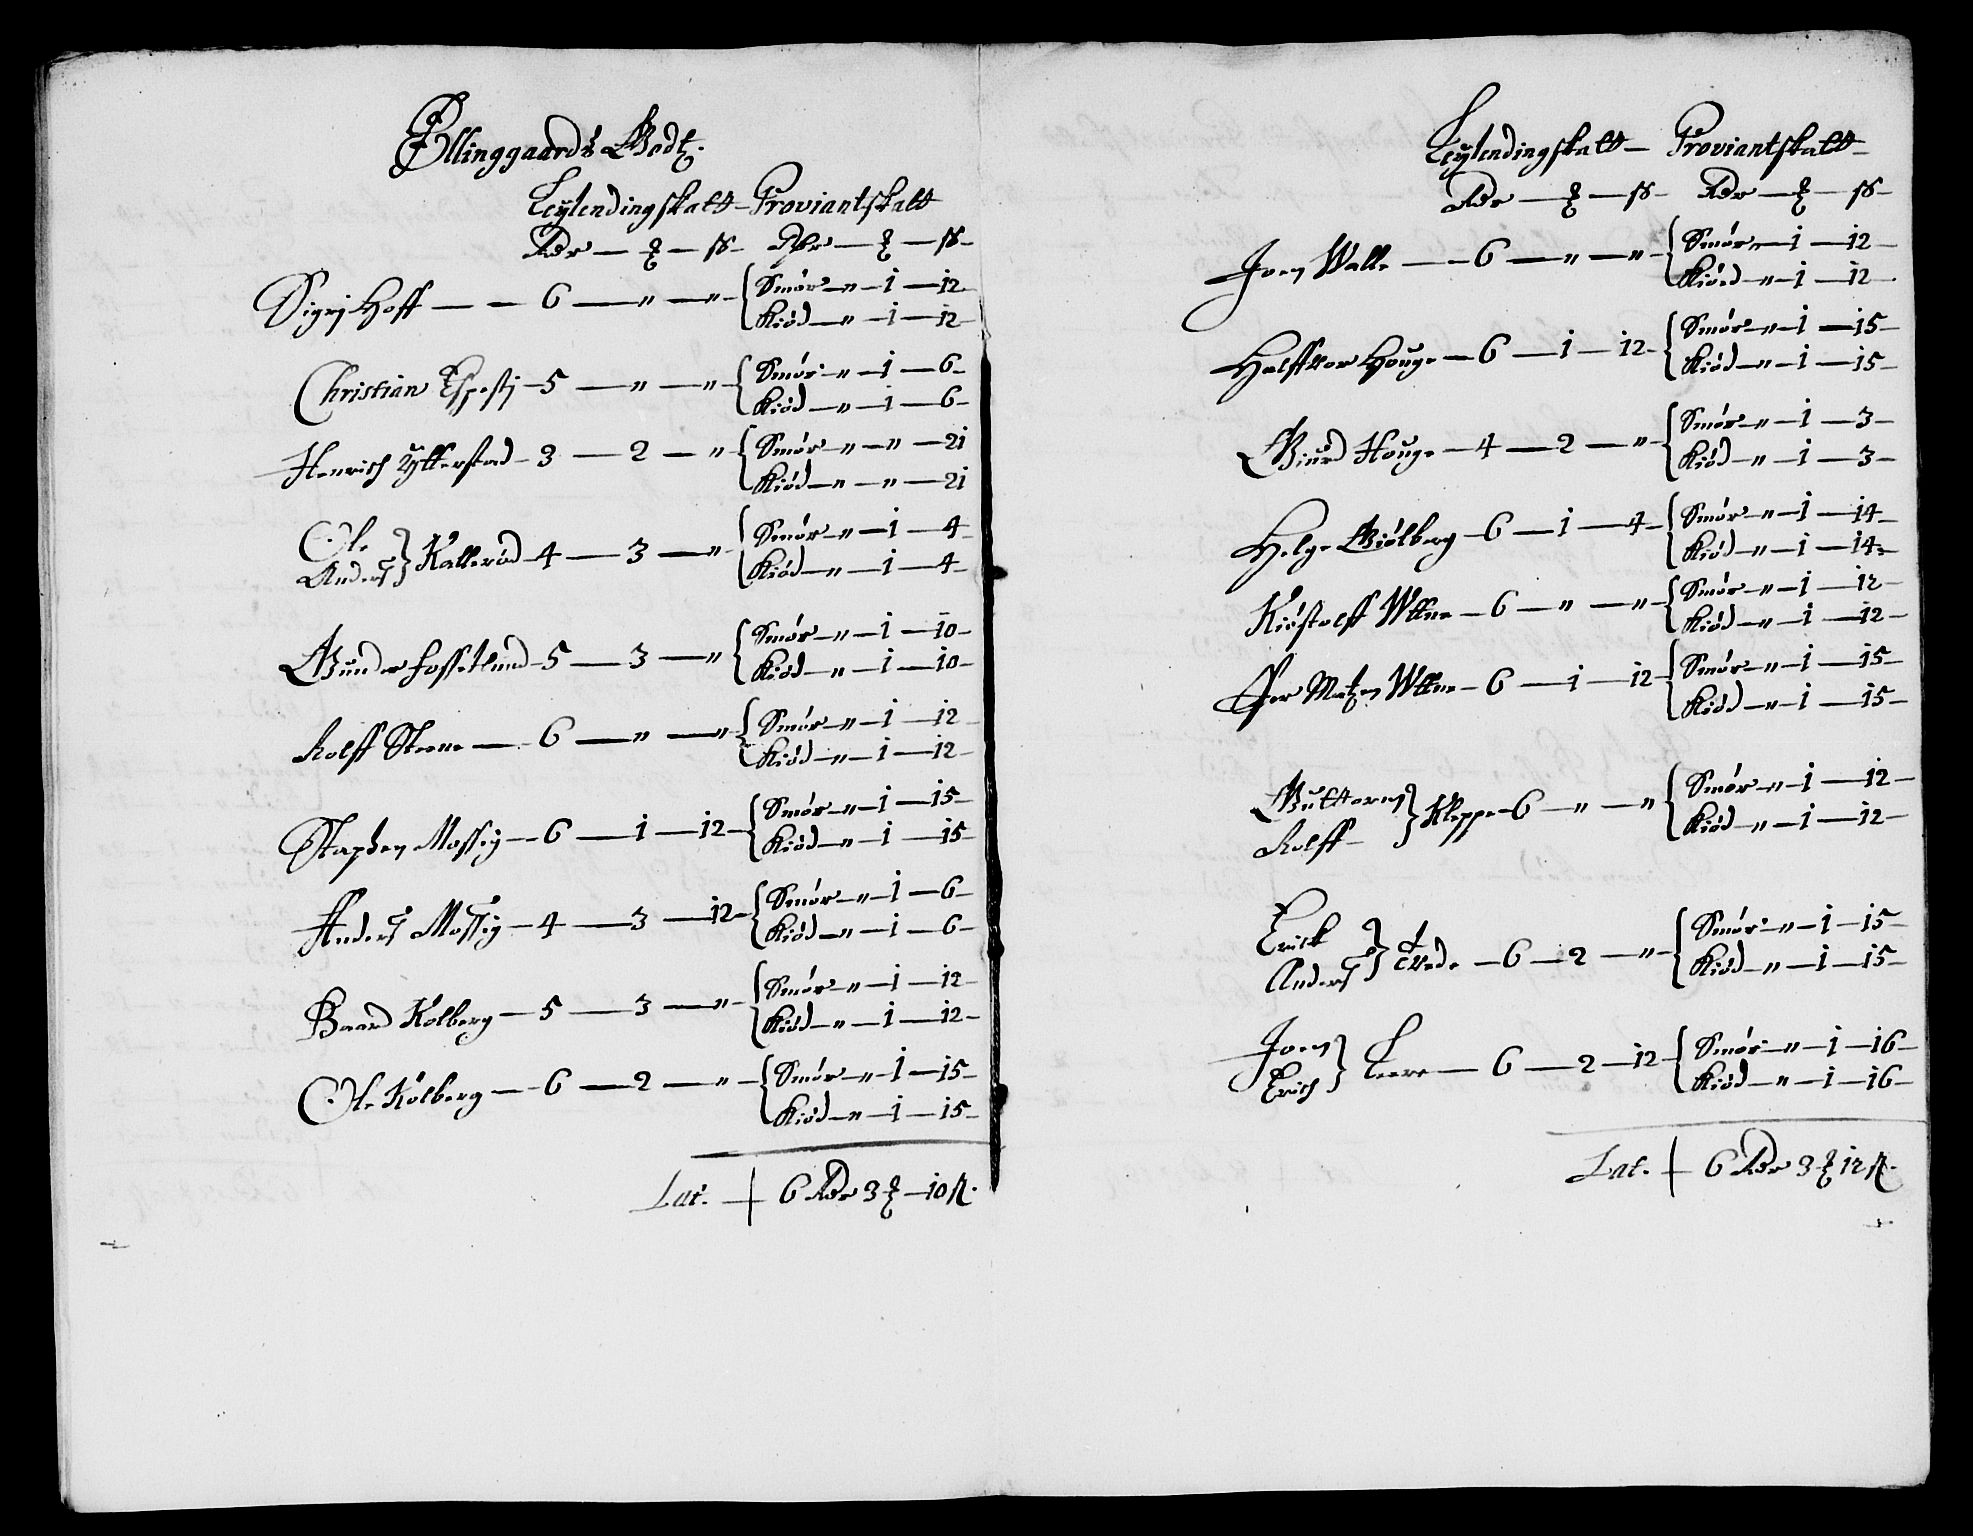 Ellinggaards Godtz.
Leylendingskatt — Proviantskatt
Rdr — ℥ — ß — Rdr — ℥ — ß —
Sigrj Hoff — — 6 — „ — „ — { Smør — „ — 1 — 12 —
Kiød — „ — 1 — 12 —
Christian Espestj — 5 — „ — „ — { Smør — „ — 1 — 6 —
Kiød — „ — 1 — 6 —
Henrich Ytterstad — 3 — 2 — „ — { Smør — „ — „ — 21
Kiød — „ — „ — 21
Ole
Anders } Kallerød — 4 — 3 — „ — { Smør — „ — 1 — 4 —
Kiød — „ — 1 — 4 —
Gunder Fossetlund — 5 — 3 — „ { Smør — „ — 1 — 10 —
Kiød — „ — 1 — 10 —
Rolff Steene — 6 — „ — „ — { Smør — „ — 1 — 12
Kiød — „ — 1 — 12 —
Staphen Mossig — 6 — 1 — 12 — { Smør — „ — 1 — 15 —
Kiød — „ — 1 — 15 —
Anders Mossig — 4 — 3 — 12 — { Smør — „ — 1 — 6 —
Kiød — „ — 1 — 6 —
Baard Kolberg — 5 — 3 — „ — { Smør — „ — 1 — 12 —
Kiød — „ — 1 — 12 —
Ole Kolberg — 6 — 2 — „ — { Smør — „ — 1 — 15 —
Kiød — „ — 1 — 15 —
Lat. — 6 Rdr 3 ℥ — 10 ß.
Leylendingskatt — Proviantskatt —
Rdr — ℥ — ß — Rdr — ℥ — ß —
Joen Walle — — 6 — „ — „ — { Smør — 1 — 12 —
Kiød — „ — 1 — 12 —
Halffuor Houge — 6 — 1 — 12 — { Smør — „ — 1 — 15 —
Kiød — „ — 1 — 15 —
Giurd Houge — 4 — 2 — „ — { Smør — „ — 1 — 3 —
Kiød — „ — 1 — 3 —
Helge Giølberg — 6 — 1 — 4 — { Smør — „ — 1 — 14 —
Kiød — „ — 1 — 14 —
Kiøstolff Wttne — 6 — „ — „ — { Smør — „ — 1 — 12 —
Kiød — „ — 1 — 12 —
Per Matzen Wttne — 6 — 1 — 12 — { Smør — „ — 1 — 15 —
Kiød — „ — 1 — 15 —
Guttorm
Rolff — } Kleppe — 6 — „ — „ { Smør — „ — 1 — 12 —
Kiød — „ — 1 — 12 —
Erick
Anders } — 6 — 2 — „ — { Smør — „ — 1 — 15 —
Kiød — „ — 1 — 15 —
Joen
Erich } Leere — 6 — 2 — 12 — { Smør — „ — 1 — 16 —
Kiød — „ — 1 — 16 —
Lat. — 6 Rdr 3 ℥ 12 ß.